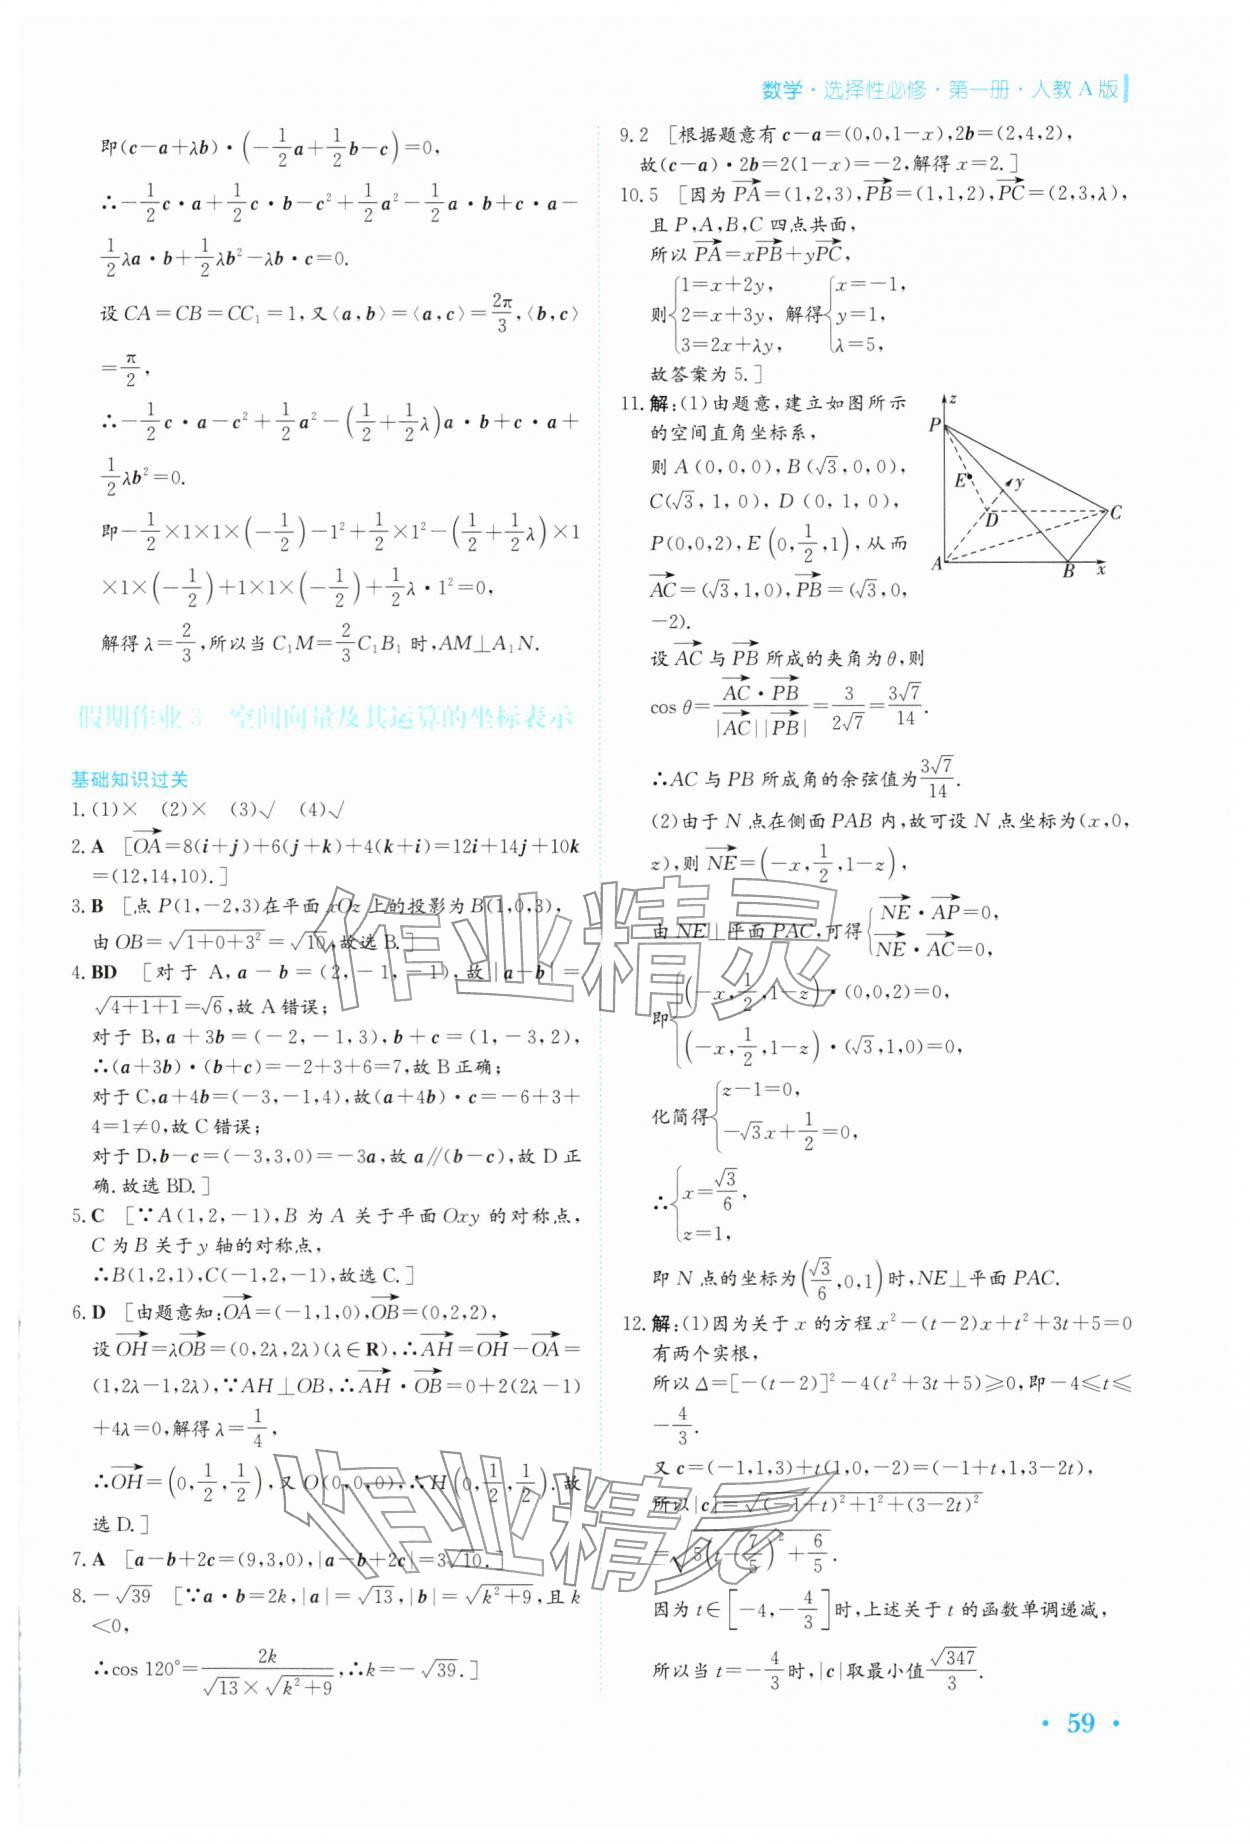 数学·选择性必修·第一册·人教 A 版
即(c−a+λb)·(−1/2a+1/2b−c)=0,
∴−1/2c·a+1/2c·b−c²+1/2a²−1/2a·b+c·a−
1/2λa·b+1/2λb²−λb·c=0.
设 CA=CB=CC₁=1,又⟨a,b⟩=⟨a,c⟩=2π/3,⟨b,c⟩
=π/2,
∴−1/2c·a−c²+1/2a²−(1/2+1/2λ)a·b+c·a+
1/2λb²=0.
即−1/2×1×1×(−1/2)−1²+1/2×1²−(1/2+1/2λ)×1
×1×(−1/2)+1×1×(−1/2)+1/2λ·1²=0,
解得 λ=2/3,所以当 C₁M=2/3C₁B₁ 时,AM⊥A₁N.
假期作业 3 空间向量及其运算的坐标表示
基础知识过关
1.(1)× (2)× (3)√ (4)√
2.A [OA→=8(i+j)+6(j+k)+4(k+i)=12i+14j+10k
=(12,14,10).]
3.B [点 P(1,−2,3)在平面 xOz 上的投影为 B(1,0,3),
由 OB=√(1+0+3²)=√10,故选 B.]
4.BD [对于 A,a−b=(2,−1,−1),故|a−b|=
√(4+1+1)=√6,故 A 错误;
对于 B,a+3b=(−2,−1,3),b+c=(1,−3,2),
∴(a+3b)·(b+c)=−2+3+6=7,故 B 正确;
对于 C,a+4b=(−3,−1,4),故(a+4b)·c=−6+3+
4=1≠0,故 C 错误;
对于 D,b−c=(−3,3,0)=−3a,故 a∥(b−c),故 D 正
确.故选 BD.]
5.C [∵A(1,2,−1),B 为 A 关于平面 Oxy 的对称点,
C 为 B 关于 y 轴的对称点,
∴B(1,2,1),C(−1,2,−1),故选 C.]
6.D [由题意知:OA→=(−1,1,0),OB→=(0,2,2),
设 OH→=λOB→=(0,2λ,2λ)(λ∈R),∴AH→=OH→−OA→=
(1,2λ−1,2λ),∵AH⊥OB,∴AH→·OB→=0+2(2λ−1)
+4λ=0,解得 λ=1/4,
∴OH→=(0,1/2,1/2),又 O(0,0,0),∴H(0,1/2,1/2).故
选 D.]
7.A [a−b+2c=(9,3,0),|a−b+2c|=3√10.]
8.−√39 [∵a·b=2k,|a|=√13,|b|=√(k²+9),且 k
<0,
∴cos 120°=2k/(√13×√(k²+9)),∴k=−√39.]
9.2 [根据题意有 c−a=(0,0,1−x),2b=(2,4,2),
故(c−a)·2b=2(1−x)=−2,解得 x=2.]
10.5 [因为 PA→=(1,2,3),PB→=(1,1,2),PC→=(2,3,λ),
且 P,A,B,C 四点共面,
所以 PA→=xPB→+yPC→,
则{1=x+2y, 2=x+3y, 3=2x+λy, 解得{x=−1, y=1, λ=5,
故答案为 5.]
11.解:(1)由题意,建立如图所示
的空间直角坐标系,
则 A(0,0,0),B(√3,0,0),
C(√3,1,0),D(0,1,0),
P(0,0,2),E(0,1/2,1),从而
AC→=(√3,1,0),PB→=(√3,0,
−2).
z
P
E
y
D
C
A
B
x
设 AC→ 与 PB→ 所成的夹角为 θ,则
cos θ=AC→·PB→/(|AC→||PB→|)=3/(2√7)=3√7/14.
∴AC 与 PB 所成角的余弦值为 3√7/14.
(2)由于 N 点在侧面 PAB 内,故可设 N 点坐标为(x,0,
z),则 NE→=(−x,1/2,1−z),
由 NE⊥平面 PAC,可得{NE→·AP→=0, NE→·AC→=0,
即{(−x,1/2,1−z)·(0,0,2)=0, (−x,1/2,1−z)·(√3,1,0)=0,
化简得{z−1=0, −√3x+1/2=0,
∴{x=√3/6, z=1,
即 N 点的坐标为(√3/6,0,1)时,NE⊥平面 PAC.
12.解:(1)因为关于 x 的方程 x²−(t−2)x+t²+3t+5=0
有两个实根,
所以 Δ=[−(t−2)]²−4(t²+3t+5)≥0,即−4≤t≤
−4/3.
又 c=(−1,1,3)+t(1,0,−2)=(−1+t,1,3−2t),
所以|c|=√((−1+t)²+1²+(3−2t)²)
=√(5(t−7/5)²+6/5).
因为 t∈[−4,−4/3]时,上述关于 t 的函数单调递减,
所以当 t=−4/3时,|c|取最小值√347/3.
· 59 ·
作业精灵
作业精灵